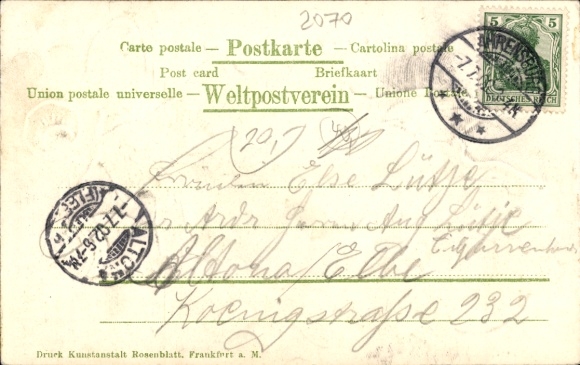 2070
Carte postale — Postkarte — Cartolina postale
Post card Briefkaart
Union postale universelle — Weltpostverein — Unione Postale
5 5
DEUTSCHES REICH
AHRENSBURG
7.7.
20,-
Fräulein Else Lütje
ALTONA
7.7.02.6-7N
Altona / Elbe
Koenigstraße 232
Druck Kunstanstalt Rosenblatt, Frankfurt a. M.